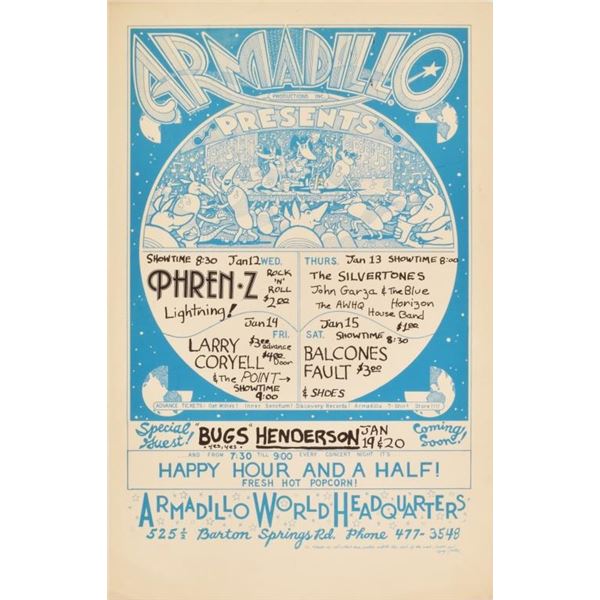 ARMADILLO
PRODUCTIONS INC.
PRESENTS
SHOWTIME 8:30 Jan 12 WED.
PHREN·Z
ROCK
'N'
ROLL
$2.00
Lightning!
THURS. Jan 13 SHOWTIME 8:00
The SILVERTONES
John Garza & The Blue
Horizon
The AWHQ House Band
$1.00
Jan 14 FRI.
LARRY
CORYELL
$3.00 advance
$4.00 door
& The POINT→
SHOWTIME
9:00
Jan 15
SAT. SHOWTIME 8:30
BALCONES
FAULT $3.00
& SHOES
ADVANCE TICKETS: Oat Willies! Inner Sanctum! Discovery Records! Armadillo T-Shirt Store!!!!
Special Guest!
"BUGS" HENDERSON
yes, yes.
JAN
19 & 20
Coming Soon!
AND FROM 7:30 TILL 9:00 EVERY CONCERT NIGHT IT'S
HAPPY HOUR AND A HALF!
FRESH HOT POPCORN!
ARMADILLO WORLD HEADQUARTERS
525½ Barton Springs Rd. Phone 477-3548